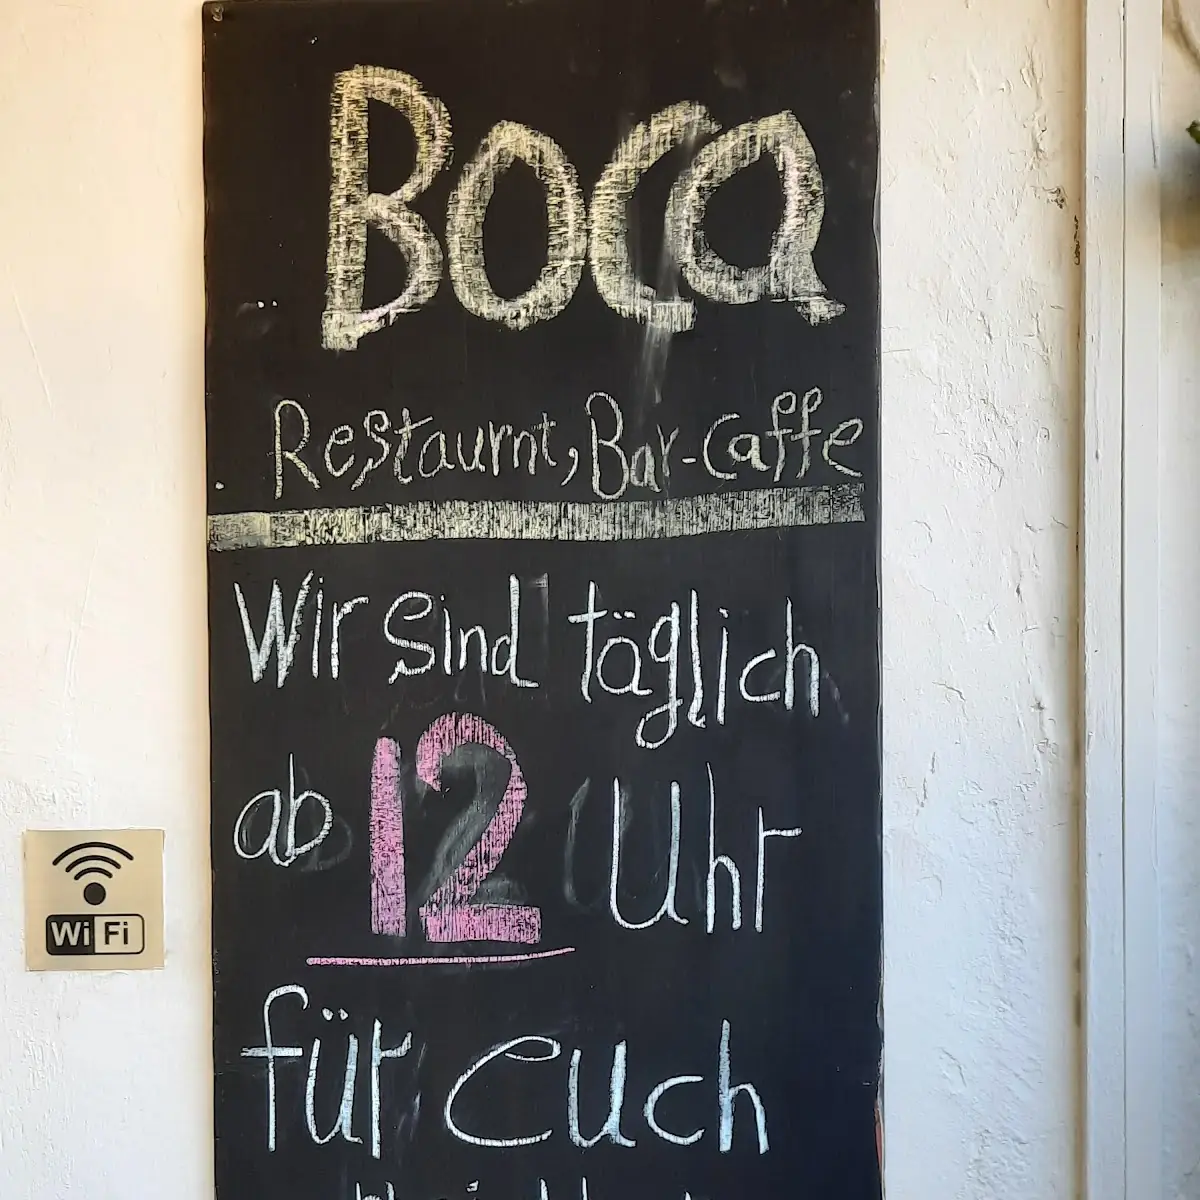 Boca
Restaurnt, Bar-Caffe
Wir sind täglich
ab 12 Uhr
für euch
WiFi